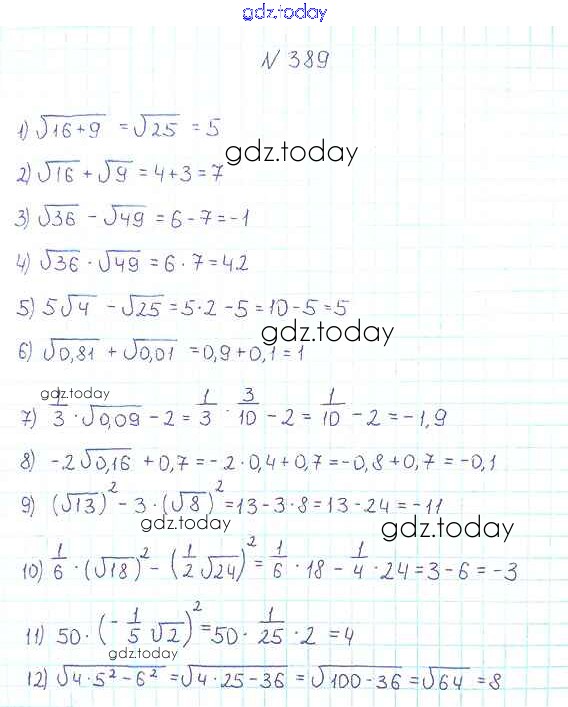 gdz.today
N 389
1) √16+9 = √25 = 5
gdz.today
2) √16 + √9 = 4+3 = 7
3) √36 - √49 = 6-7 = -1
4) √36 · √49 = 6 · 7 = 42
5) 5√4 - √25 = 5·2 - 5 = 10-5 = 5
gdz.today
6) √0,81 + √0,01 = 0,9+0,1 = 1
gdz.today
7) 1/3 · √0,09 - 2 = 1/3 · 3/10 - 2 = 1/10 - 2 = -1,9
8) -2√0,16 + 0,7 = -2·0,4+0,7 = -0,8+0,7 = -0,1
9) (√13)² - 3·(√8)² = 13-3·8 = 13-24 = -11
gdz.today
gdz.today
10) 1/6 · (√18)² - (1/2 √24)² = 1/6 · 18 - 1/4 · 24 = 3-6 = -3
11) 50 · (-1/5 √2)² = 50 · 1/25 · 2 = 4
gdz.today
12) √4·5²-6² = √4·25-36 = √100-36 = √64 = 8